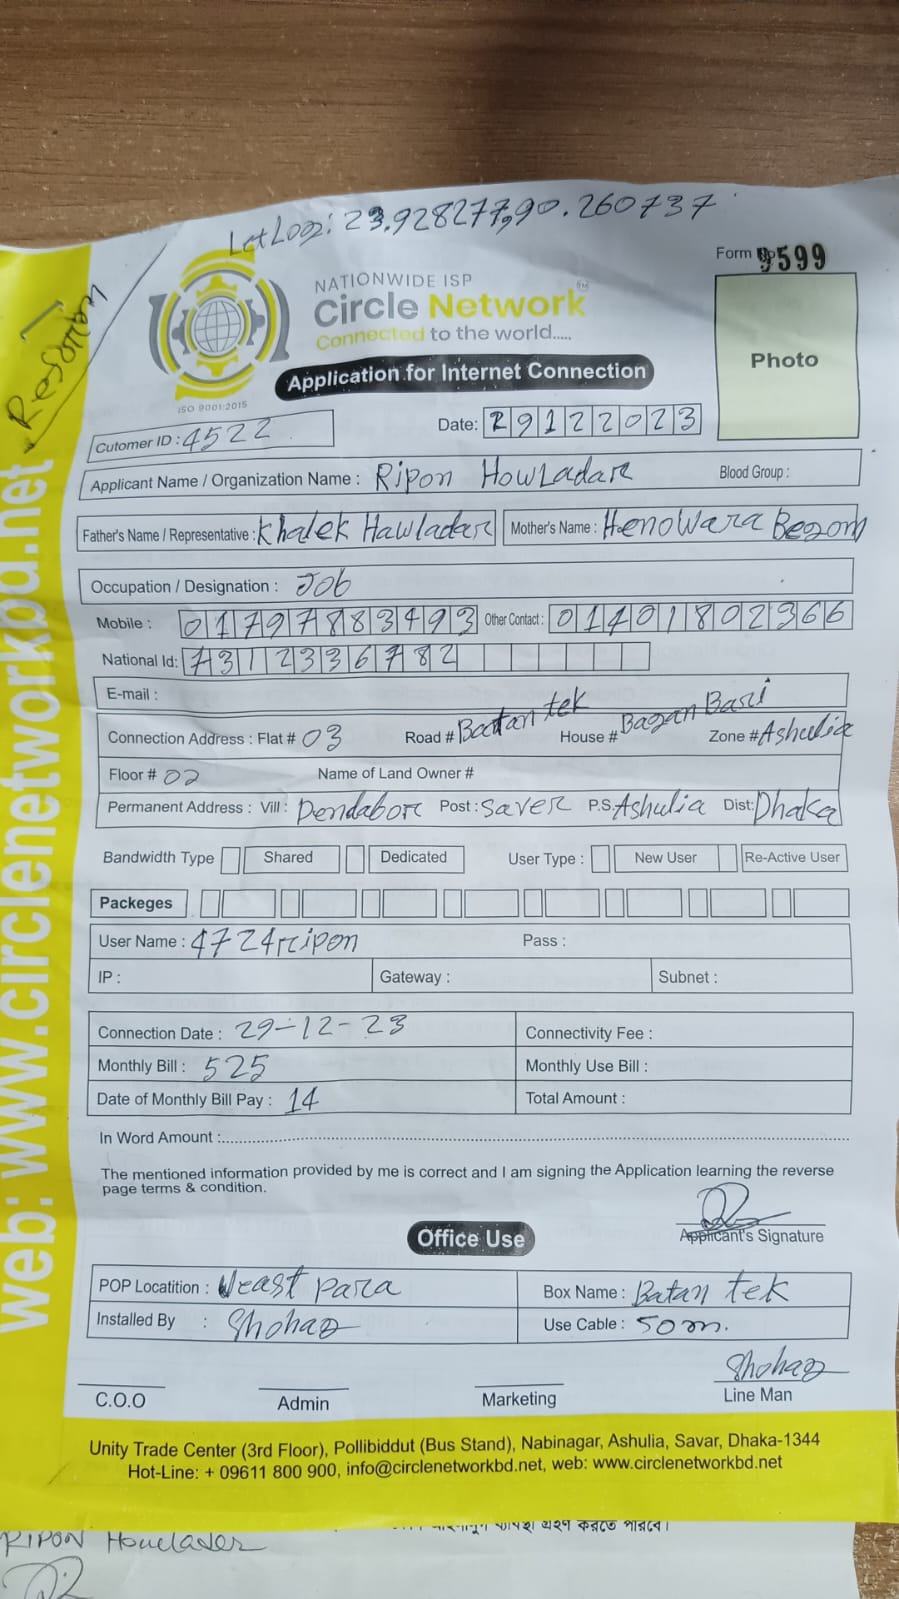 Let Long: 23.928277,90.260737
Form No 9599
NATIONWIDE ISP
Circle Network
SM
Connected to the world.....
ISO 9001:2015
Photo
Application for Internet Connection
Cutomer ID : 4522
Date: 29122023
Applicant Name / Organization Name : Ripon Howladar Blood Group :
Father's Name / Representative : Khalek Hawladar Mother's Name : Henowara Begom
Occupation / Designation : Job
Mobile : 01797883493 Other Contact : 01401802366
National Id: 7312336782
E-mail :
Connection Address : Flat # 03 Road # Batan tek House # Bagan Bari Zone # Ashulia
Floor # 02 Name of Land Owner #
Permanent Address : Vill : Dendabor Post : Saver P.S. Ashulia Dist: Dhaka
Bandwidth Type Shared Dedicated User Type : New User Re-Active User
Packeges
User Name : 4724ripon Pass :
IP : Gateway : Subnet :
Connection Date : 29-12-23 Connectivity Fee :
Monthly Bill : 525 Monthly Use Bill :
Date of Monthly Bill Pay : 14 Total Amount :
In Word Amount :
The mentioned information provided by me is correct and I am signing the Application learning the reverse
page terms & condition.
Applicant's Signature
Office Use
POP Locatition : Weast Para Box Name : Batan tek
Installed By : Shohag Use Cable : 50m.
Shohag
C.O.O Admin Marketing Line Man
Unity Trade Center (3rd Floor), Pollibiddut (Bus Stand), Nabinagar, Ashulia, Savar, Dhaka-1344
Hot-Line: + 09611 800 900, info@circlenetworkbd.net, web: www.circlenetworkbd.net
web: www.circlenetworkbd.net
গ্রহণ করতে পারবে।
RIPON Howlader